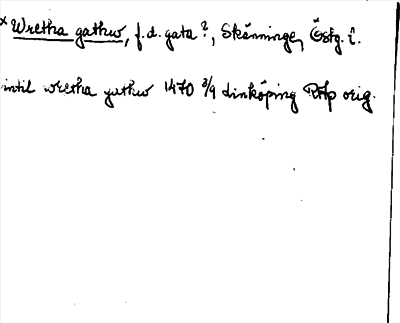 x Wretha gathw, f.d. gata?, Skänninge, Östg. l.
intil wretha gathw 1470 3/9 Linköping RAp orig.